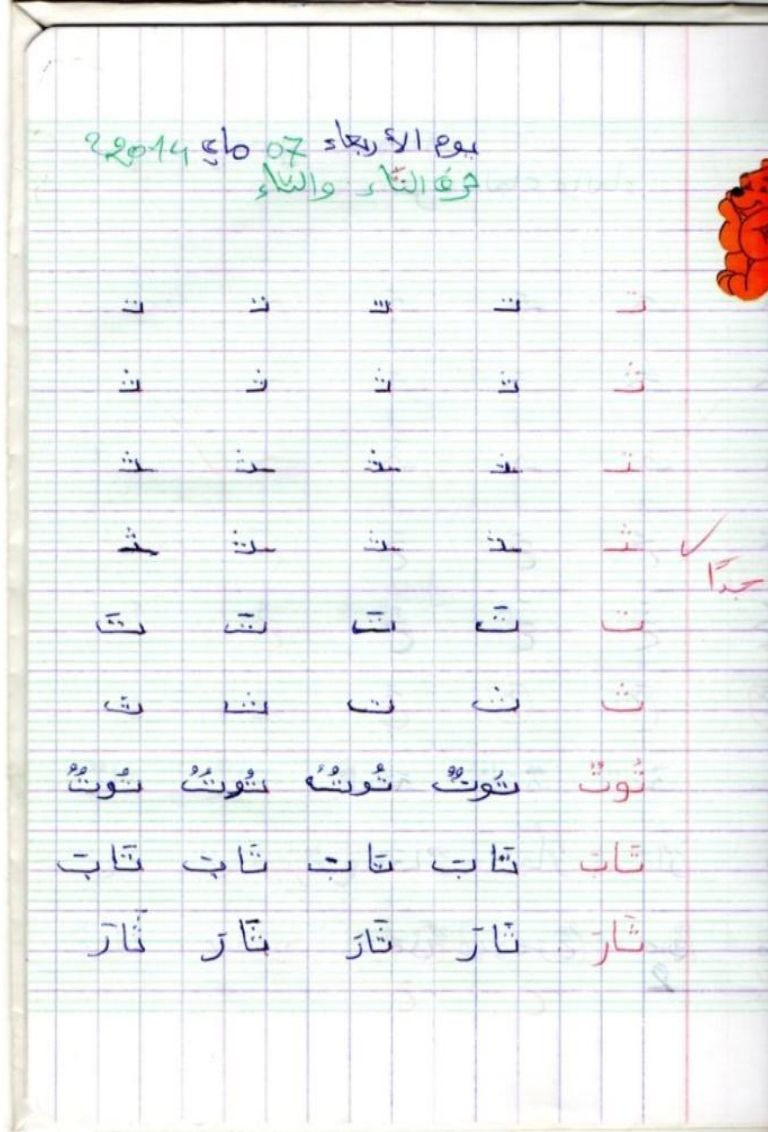 يوم الأربعاء 07 ماي 2014م
حرف التاء والثاء
تـ تـ تـ تـ تـ
ثـ ثـ ثـ ثـ ثـ
ـتـ ـتـ ـتـ ـتـ ـتـ
ـثـ ـثـ ـثـ ـثـ ـثـ
جدًا
تَ تَ تَ تَ تَ
ث ث ث ث ث
تُوتٌ تُوتٌ تُوتٌ تُوتٌ تُوتٌ
تَابَ تَابَ تَابَ تَابَ تَابَ
ثَارَ ثَارَ ثَارَ ثَارَ ثَارَ